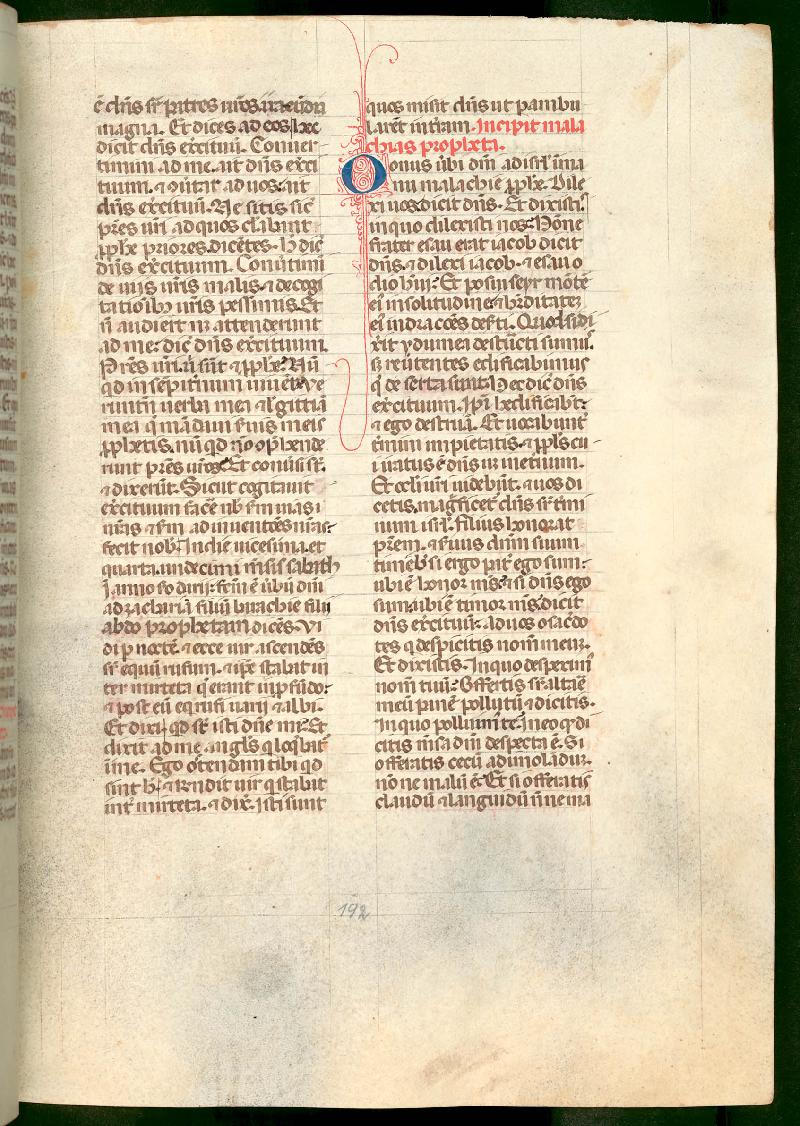 ē dn̄s sr̄ patres ur̄os iracūdia
magna. Et dices ad eos hec
dicit dn̄s exercituū. Conuer-
timini ad me. ait dn̄s exerci
tuum. ⁊ ꝯuertar ad uos. ait
dn̄s exercituū. Ne sitis sic̄
pr̄es ur̄i ad quos clabant
ꝓphe priores. dicētes. h̄ dic̄
dn̄s exercituum. Conūtimi
de uiis ur̄is malis. ⁊ de cogi
tatioībꝫ ur̄is pessimis. Et
n̄ audierūt n̄ attenderunt
ad me. dic̄ dn̄s exercituum.
Pr̄es ur̄i ū sūt ⁊ ꝓphe. Nū
qd in sēpit̄num uiuēt. Ve
runtn̄ uerba mea ⁊ legittia
mea q̄ mādaui s̄uis meis
ꝓphetis. nū qd n̄ ꝯp̄hende
runt pr̄es ur̄os. Et conūsi sr̄.
⁊ dixerūt. Sicut cogitauit
exercituum facē nob̄ sm̄ uias
nr̄as ⁊ sm̄ ad inuentōes nr̄as.
fecit nob̄. In die uicesima. et
quarta. undecimi mēsis sabath
ī anno scd̄o darij. fcm̄ ē ūbū dn̄i
ad zachariā filiū barachie filii
abdo prophetam dicēs. Vi
di p noctē. ⁊ ecce uir ascendēs
sr̄ equū rufum. ⁊ ip̄e stabat in
ter mirteta q̄ erant in ꝓfūdo.
⁊ post eū eq rufi uarij ⁊ albi.
Et dixi. qd sr̄ isti dn̄e mi. Et
dixit ad me angl̄s q loq̄bat̄
ī me. Ego ostendam tibi qd
sint h̄. ⁊ rn̄dit uir q stabat
int̄ mirteta. ⁊ dix̄. Isti sunt
quos misit dn̄s ut pambu
larēt in t̄ram. Incipit mala
chias propheta.
Onus ūbi dn̄i ad isrl̄ ī ma
nu malachie ꝓphe. Dile
xi uos. dicit dn̄s. Et dixistis.
in quo dilexisti nos. Nōne
frater esau erat iacob dicit
dn̄s. ⁊ dilexi iacob. ⁊ esau o
dio hui. Et posui seyr mōtē
eī in solitudinē ⁊ h̄editatez
eī in dracōēs deserti. Quod si di
xit ydumea destructi sumus.
sꝫ reūtentes edificabimus
q̄ destructa sunt. Hec dic̄ dn̄s
exercituum. Ip̄i hedificabūt.
⁊ ego destruā. Et uocabunt̄
t̄mini impietatis. ⁊ ppl̄s cu-
i iratus ē dn̄s in et̄num.
Et ocl̄i ur̄i uidebūt. ⁊ uos di
cetis. magnificet̄ dn̄s sr̄ t̄mi
num isrl̄. Filius honorat
pr̄em. ⁊ s̄uus dnm̄ suum
timebit. si ergo pat̄ ego sum.
ubi ē honor ms̄. ⁊ si dn̄s ego
sum. ubi ē timor ms̄. dicit
dn̄s exercituū. Ad uos o sac̄do
tes q despicitis nom̄ meuz.
Et dixistis. In quo despeximꝰ
nom̄ tuū. Offertis sr̄ altare
meū panē pollutū ⁊ dicitis.
In quo polluimꝰ te. In eo q̄ di
citis. mēsa dn̄i despecta ē. Si
offeratis cecū ad imolādū.
nōne malū ē. Et si offeratis
claudū ⁊ languidū n̄ne ma
192